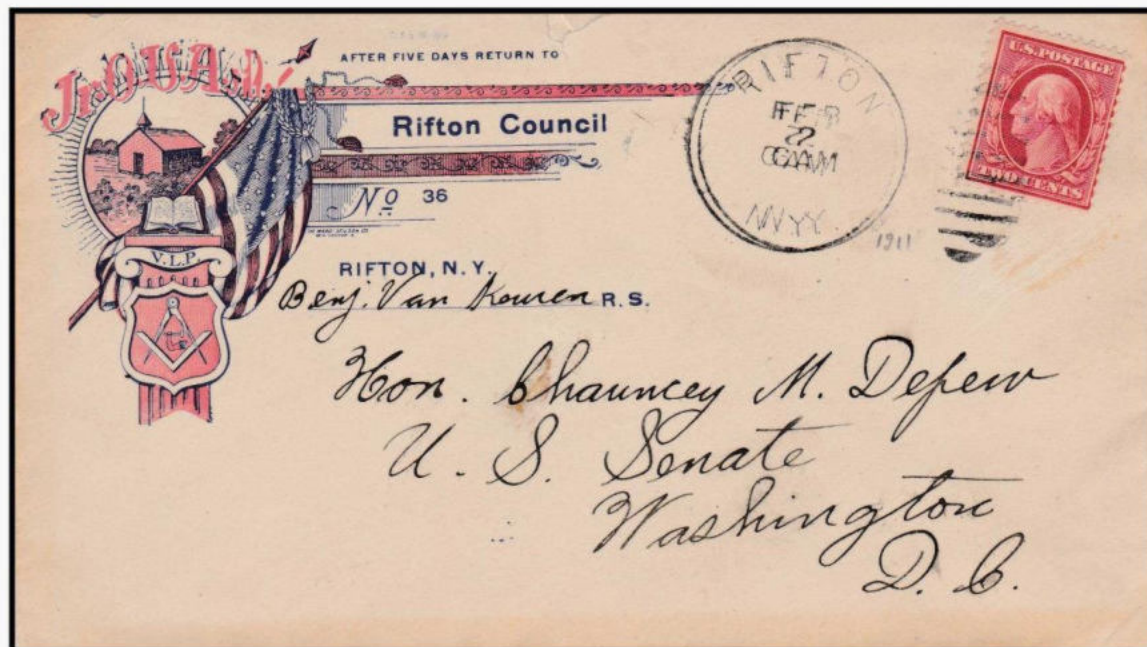 Jr. O. U. A. M.
AFTER FIVE DAYS RETURN TO
Rifton Council
No 36
RIFTON, N. Y.
Benj. Van Kouren R. S.
V.L.P.
RIFTON
FEB
6 AM
N.Y.
1911
U.S. POSTAGE
TWO CENTS
Hon. Chauncey M. Depew
U. S. Senate
Washington
D. C.